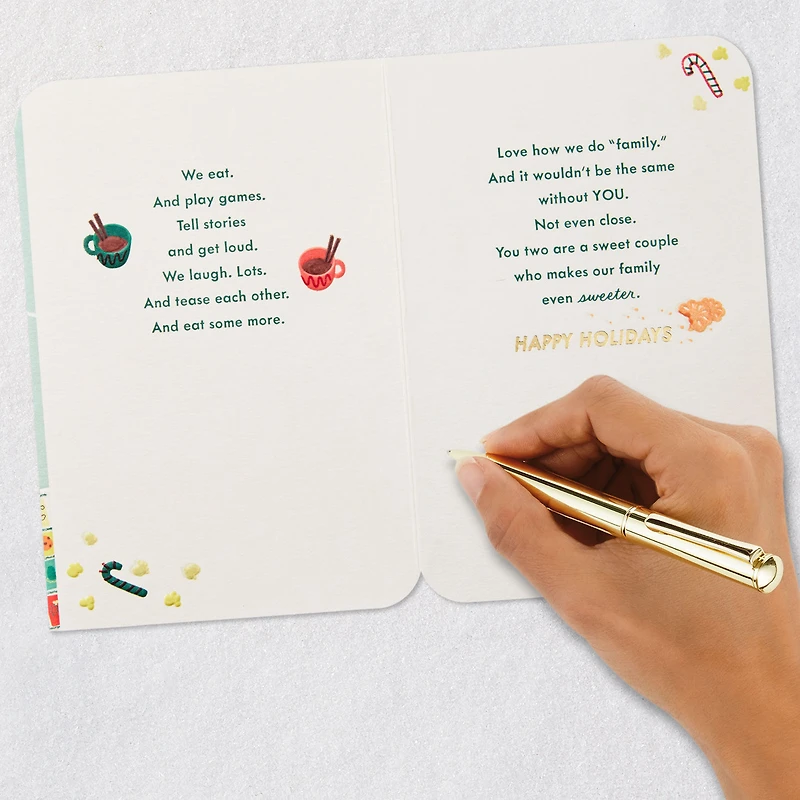 We eat.
And play games.
Tell stories
and get loud.
We laugh. Lots.
And tease each other.
And eat some more.
Love how we do “family.”
And it wouldn't be the same
without YOU.
Not even close.
You two are a sweet couple
who makes our family
even sweeter.
HAPPY HOLIDAYS